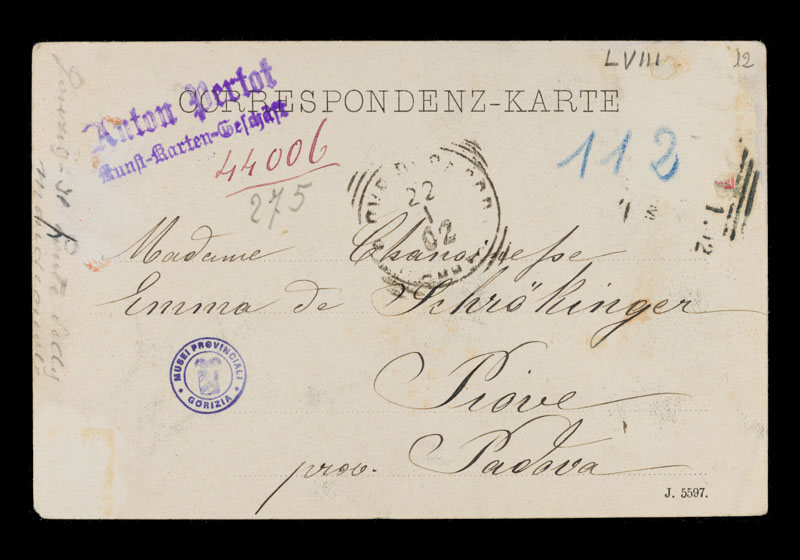 LVIII
12
CORRESPONDENZ-KARTE
Anton Pertot
Kunst-Karten-Geschäft
44006
275
112
22
1
02
Madame Chanoinesse
Emma de Schrökinger
Piove
prov. Padova
MUSEI PROVINCIALI
GORIZIA
J. 5597.